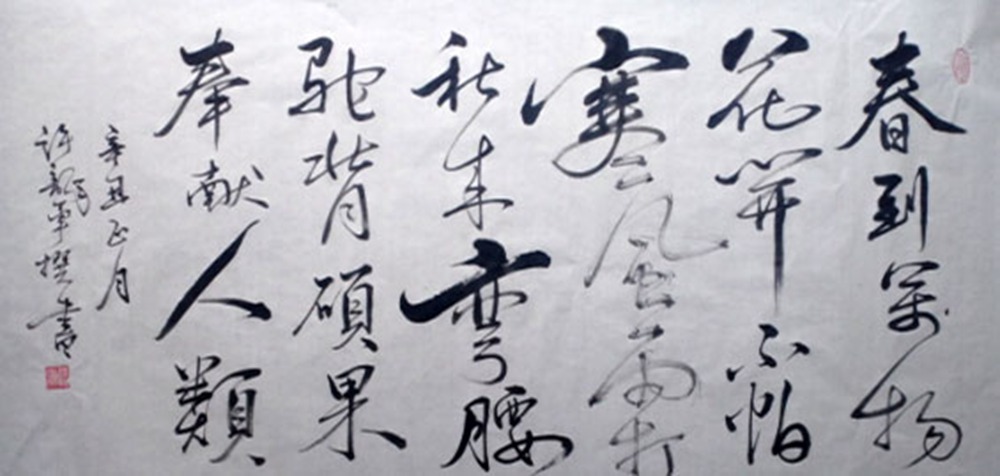 春到萬物
花開不怕
寒風雨打
秋来弯腰
驼背碩果
奉献人類
辛丑正月
許軍撰書